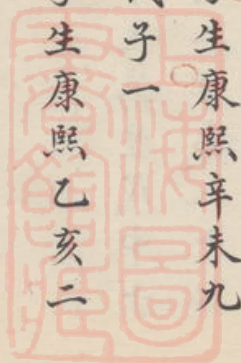 生康熙辛未九
子一
生康熙乙亥二
上海圖